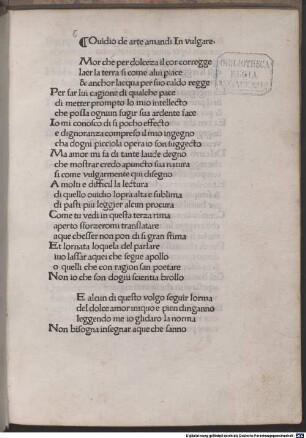 6
¶Ouidio de arte amandi In vulgare.
BIBLIOTHECA
REGIA
MONACENSIS
Mor che per dolceza il cor corregge
laer la terra si come alui piace
& anchor lacqua per suo caldo regge
Per far lui cagione di qualche pace
di metter prompto lo mio intellecto
che possa ognuin fugir sua ardente face
Io mi conosco di si pocho effecto
e dignoranza compreso il mio ingegno
cha dogni picciola opera io son suggecto
Ma amor mi fa di tante laude degno
che mostrar credo apuncto sua natura
si come vulgarmente qui disegno
A molti e difficil la lectura
di quello ouidio lopra alta e sublima
di pasti piu leggier alcun procura
Come tu vedi in questa terza rima
aperto sforzeromi translatare
aque chesser non pon di si gran stima
Et lornata loquela del parlare
iuo lassar aquei che segue apollo
o quelli che con ragion san poetare
Non io che son dogni scientia brollo
E alcun di questo volgo seguir forma
del dolce amor iniquo e pien dinganno
leggendo me io glidaro la norma
Non bisogna insegnar aque che sanno